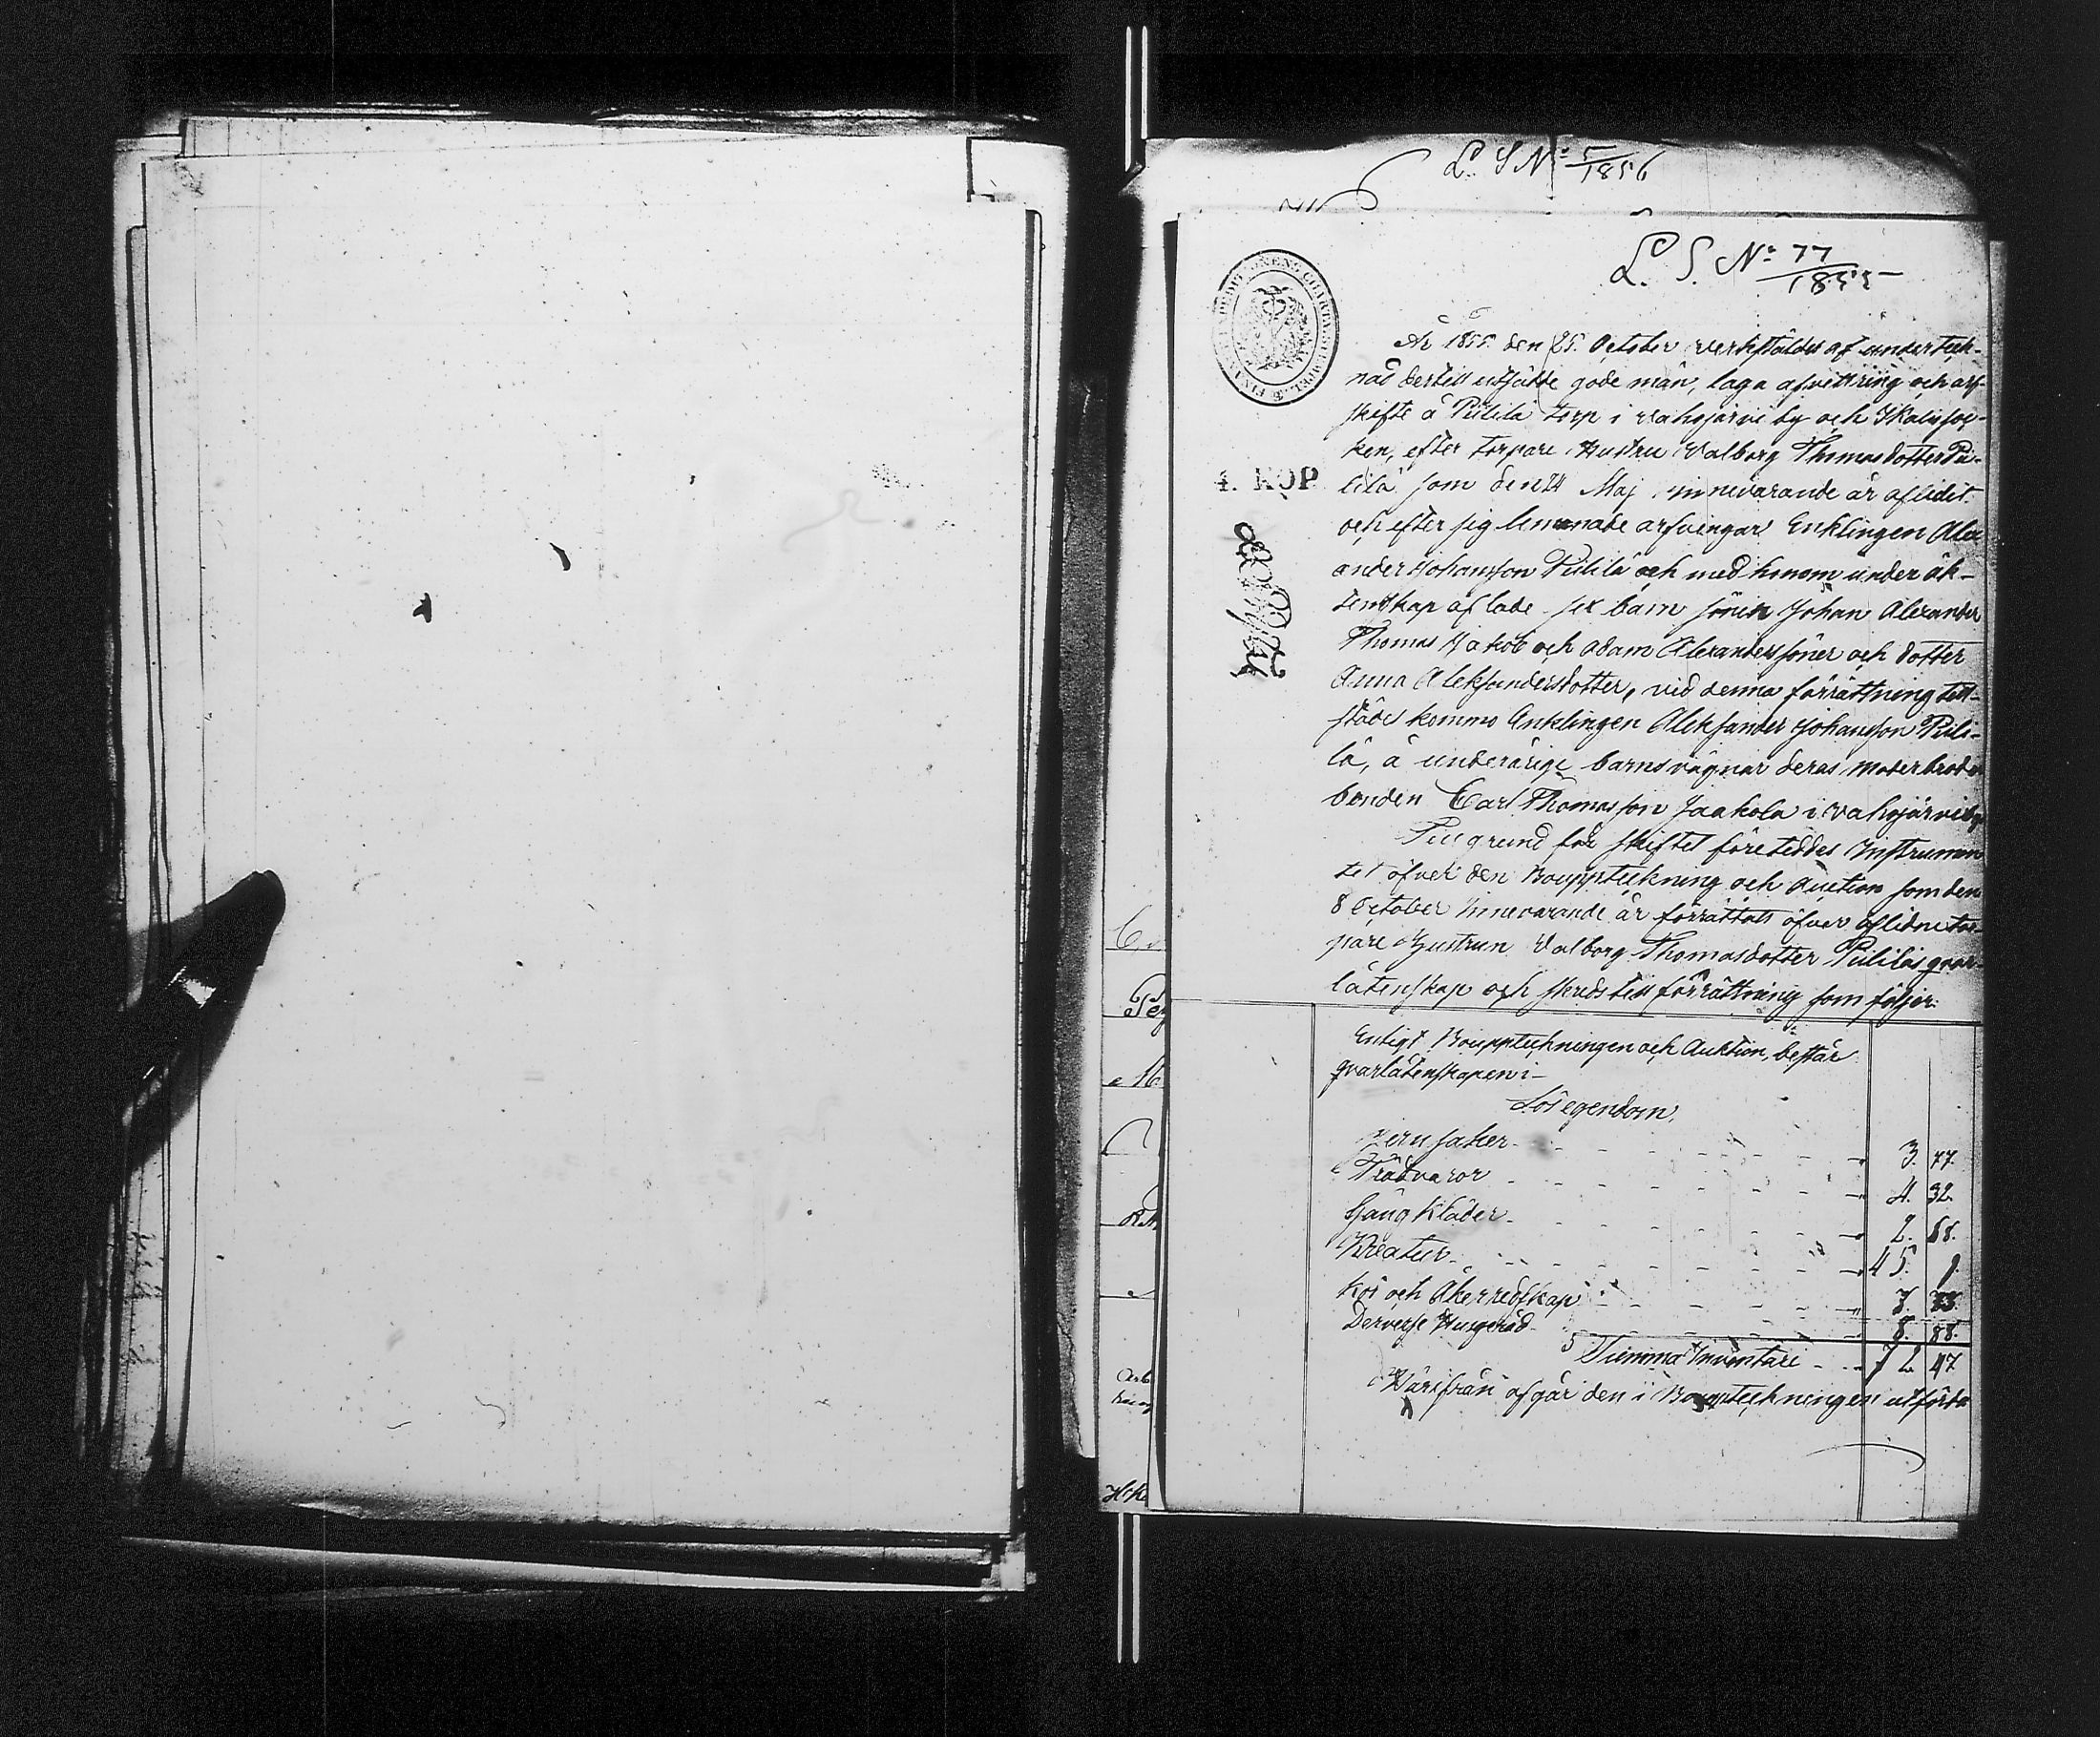 L. S. N: 5/1856
L. S. N: 77/1855
4. KOP.
År 1855. den 25. October verkställdes af underteck-
nad dertill utsatte gode män, laga afvittring och arf-
skifte å Piililä torp i Vahojärvi by och Ikalis soc-
ken, efter torpare Hustru Valborg Thomasdotter Pii-
lilä som den 24 Maj innevarande år aflidit
och efter sig lemnade arfvingar Enklingen Alex
ander Johansson Piililä och med honom under äk-
tenskap aflade sex barn sönen Johan Alexander
Thomas Jakob och Adam Alexanderssöner och dotter
Anna Aleksandersdotter, vid denna förrättning till-
städes kommo Enklingen Aleksander Johansson Piili-
lä, å underårige barns vägnar deras moderbroder
bonden Carl Thomasson Jaakola i Vahojärvi by
Till grund för skiftet företeddes Instrumen
tet öfver den Bouppteckning och Auction som den
8 October innevarande år förrättats öfver aflidne tor-
pare Hustrun Valborg Thomasdotter Piililäs qvar-
låtenskap och skreds till förrättning som följer:
Enligt Bouppteckningen och Auktion, består
qvarlåtenskapen i
Lös egendom,
Jern saker 3. 77.
Trädvaror 4. 32.
Gång Kläder 2. 68.
Kreatur 45. 9.
Kör och Åkerredskap 7. 73.
Diverse Husgeråd 8. 88.
Summa Inventari 72 47
Härifrån afgår den i Bouppteckningen utförta